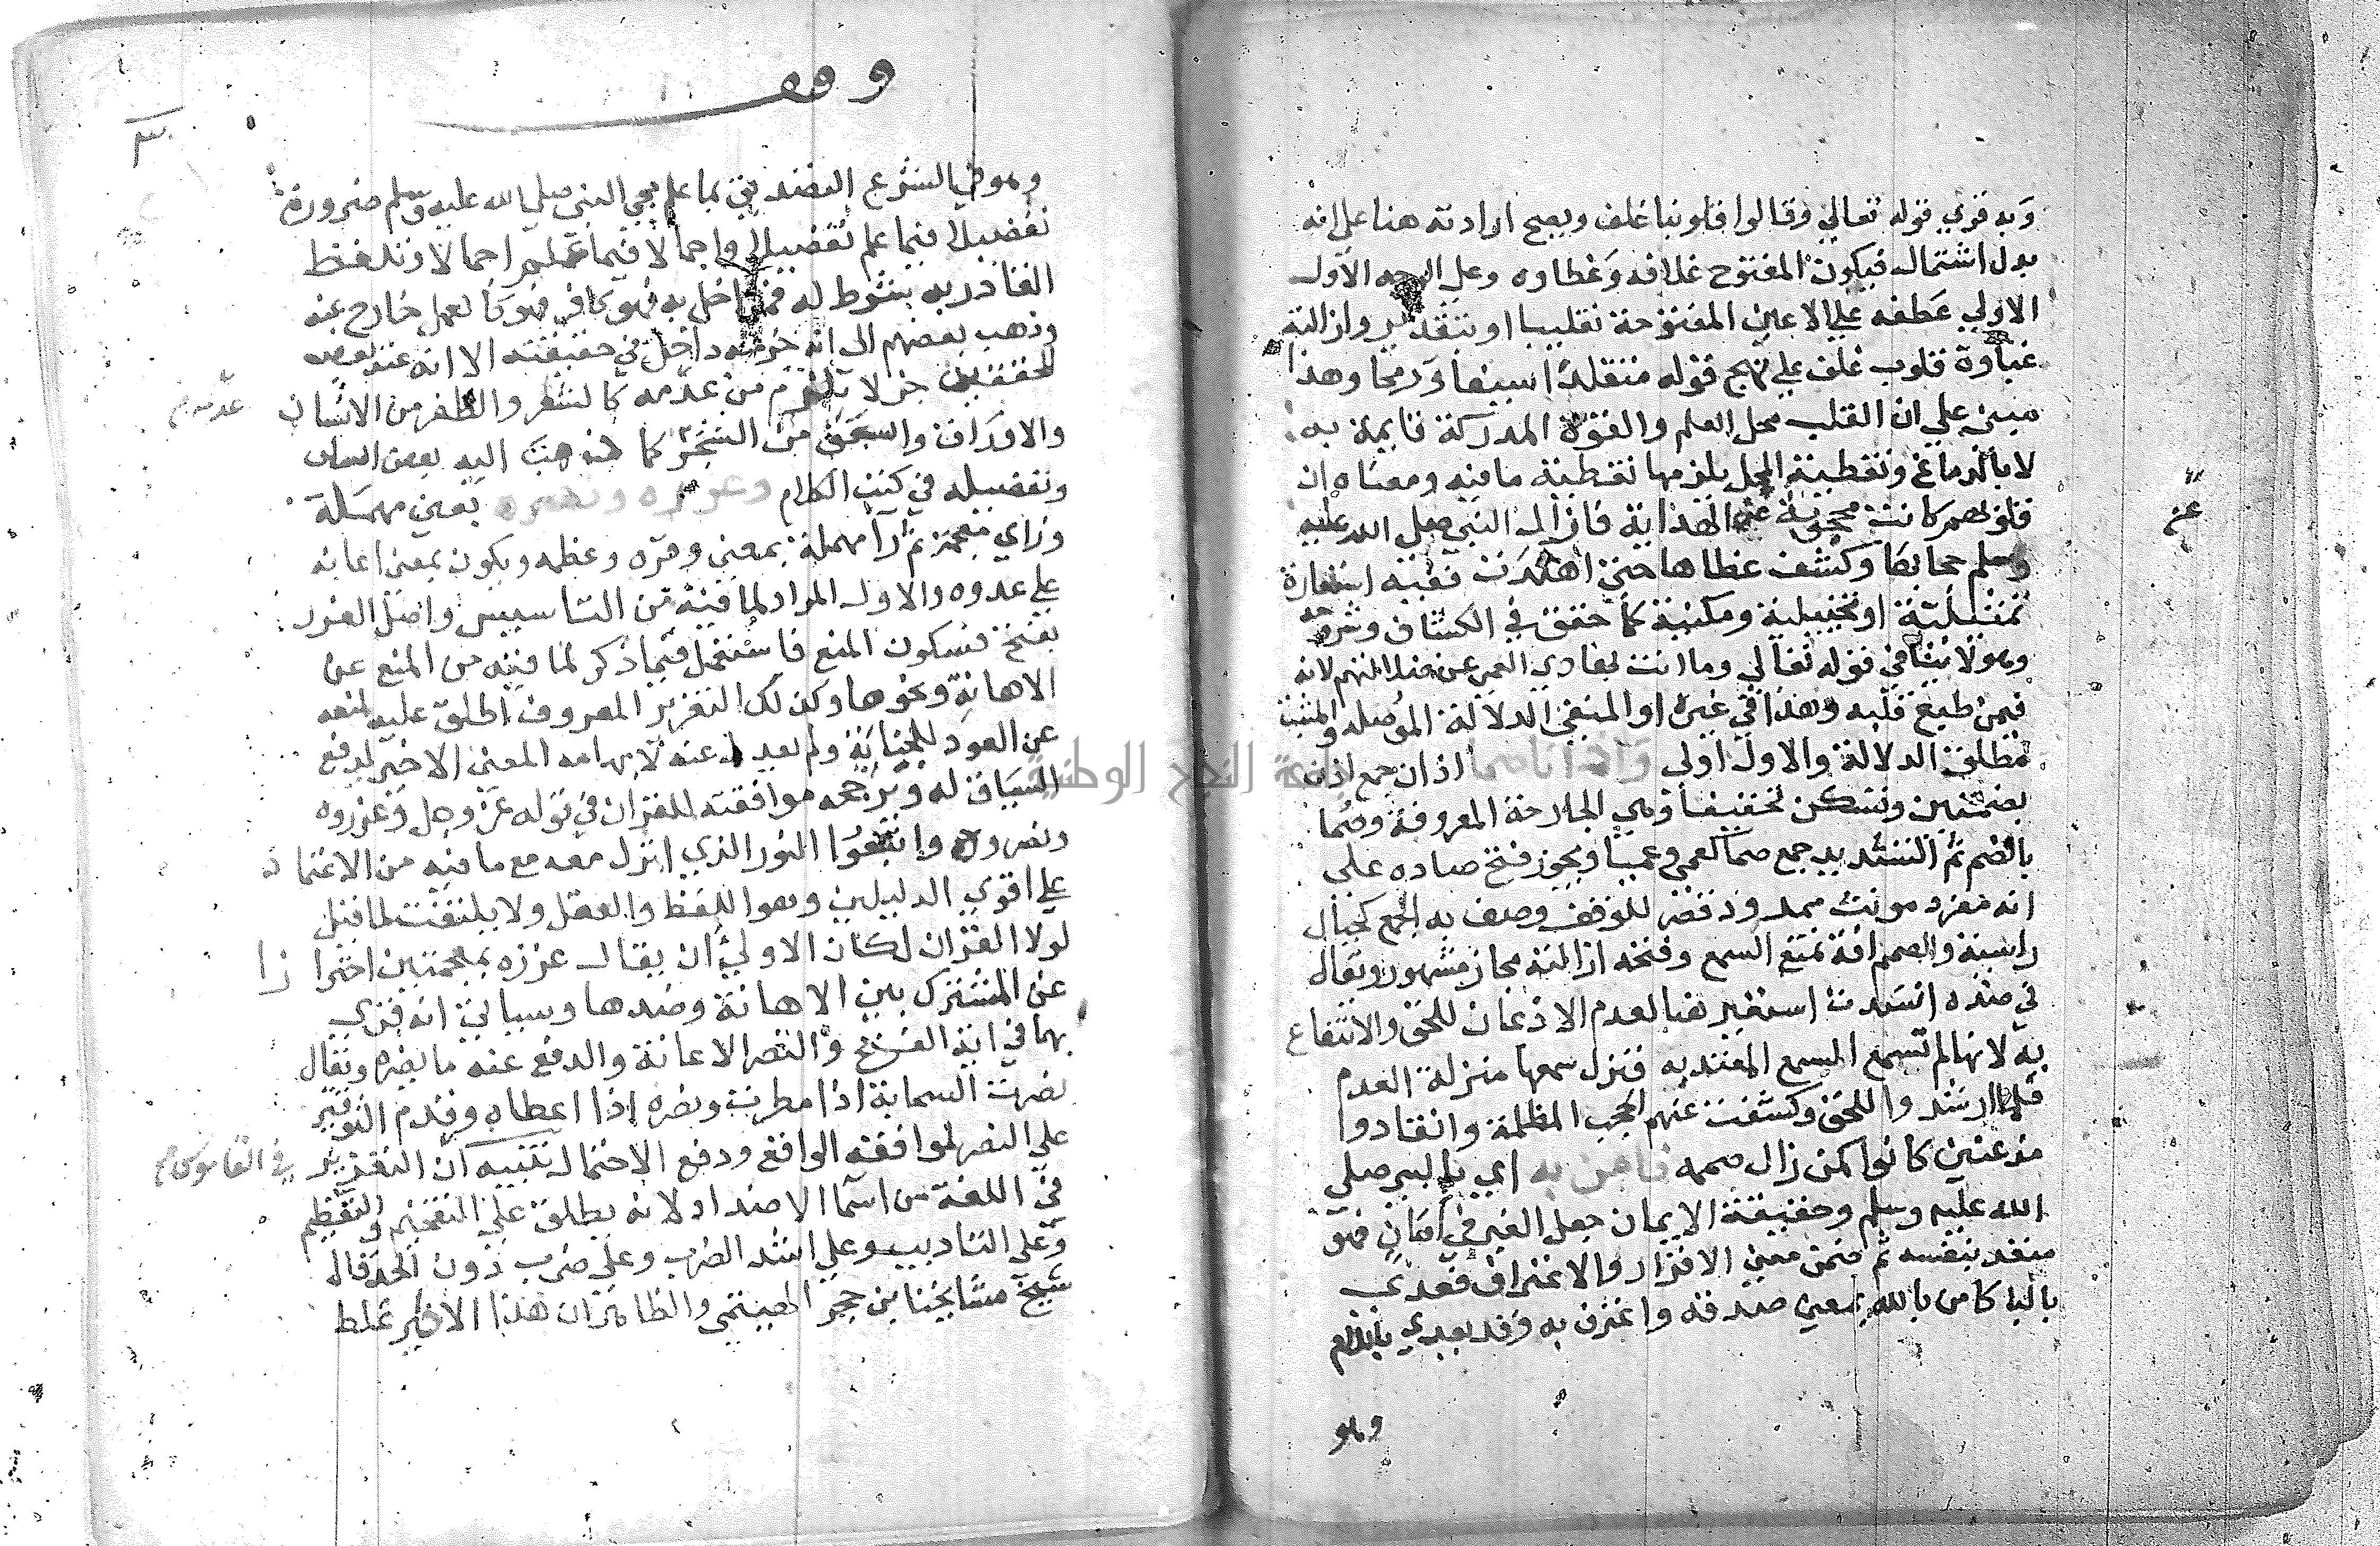 وبه قري قوله تعالي وقالوا قلوبنا غلف ويصح ارادته هنا علي انه
بدل اشتمال فيكون المفتوح غلافه وغطاوه وعلي الوجه الاول
الاولي عطفه علي الاعين المفتوحة تغليبا او بتقدير وازالته
غباوة قلوب غلف علي نهج قوله متقلدا سيفا ورمحا وهذا
مبني علي ان القلب محل العلم والقوة المدركة قايمة به
لا بالدماغ وتغطية المحل يلزمها تغطية ما فيه ومعناه ان
قلوبهم كانت محجوبة عن الهداية فازال النبي صلي الله عليه
وسلم حجابها وكشف غطاها حتي اهتدت ففيه استعارة
تمثيلية او تخييلية ومكنية كما حقق في الكشاف وشروحه
وهو لا ينافي قوله تعالي وما انت بهادي العمي عن ضلالتهم لانه
فيمن طبع قلبه وهذا في غيره او المنفي الدلالة الموصله والمثبت
مطلق الدلالة والاول اولي واذانا صما اذان جمع اذن
بضمتين وتسكن تخفيفا وهي الجارحة المعروفة وصما
بالضم ثم التشديد جمع صما كعمي وعميا ويجوز فتح صاده علي
انه مفرد مونث ممدود قصر للوقف وصف به الجمع كجبال
راسية والصمم افة تمنع السمع وفتحه ازالته مجاز مشهور ويقال
في ضده انسدت استعير هنا لعدم الاذعان للحق والانتفاع
به لانها لم تسمع المسمع المعتد به فنزل سمعها منزلة العدم
فلما ارشدوا للحق وكشفت عنهم الحجب المظلمة وانقادوا
مذعنين كانوا كمن زال صممه فامن به اي بالنبي صلي
الله عليه وسلم وحقيقة الايمان جعل الغير في امان فهو
متعد بنفسه ثم ضمن معني الاقرار والاعتراف فعدي
بالبا كامن بالله بمعني صدقه واعترف به وقد يعدي باللام
وهو
عن
وقف
وهو في الشرع التصديق بما علم مجي النبي صلي الله عليه وسلم ضرورة
تفصيلا فيما علم تفصيلا واجمالا فيما علم اجمالا وتلفظ
القادر به بشرط له فمن اخل به فهو كافر فهو كالعمل خارج عنه
وذهب بعضهم الي انه جز منه داخل في حقيقته الا انه عند بعض
المحققين جز لا يلزم من عدمه كالشعر والظفر من الانسان
والاوراق والسعف من الشجر كما ذهب اليه بعض
وتفصيله في كتب الكلام وعزره ونصره بعين مهملة
وزاي معجمة ثم را مهملة بمعني وقره وعظمه ويكون بمعني اعانه
علي عدوه والاول المراد لما فيه من التاسيس واصل العزر
بفتح فسكون المنع فاستعمل فيما ذكر لما فيه من المنع عن
الاهانة ونحوها وكذلك التعزير المعروف اطلق عليه لمنعه
عن العود للجناية ولم يعدل عنه لايهامه المعني الاخير لدفع
السياق له ويرجحه موافقته للقران في قوله عز وجل وعزروه
ونصروه واتبعوا النور الذي انزل معه مع ما فيه من الاعتماد
علي اقوي الدليلين وهو اللفظ والعقل ولا يلتفت لما قيل
لولا القران لكان الاولي ان يقال عززه بمعجمتين احترازا
عن المشترك بين الاهانة وضدها وسياتي انه قري
بهما في اية الفتح والنصر الاعانة والدفع عنه ما يضره ويقال
نصرت السحابة اذا مطرت ونصره اذا اعطاه وقدم التوقير
علي النصر لموافقة الواقع ودفع الاحتمال تنبيه ان التعزير في القاموس
في اللغة من اسما الاضداد لانه يطلق علي التفخيم والتعظيم
وعلي التاديب وعلي اشد الضرب وعلي ضرب دون الحد قال
شيخ مشايخنا بن حجر الهيتمي والظاهر ان هذا الاخير غلط